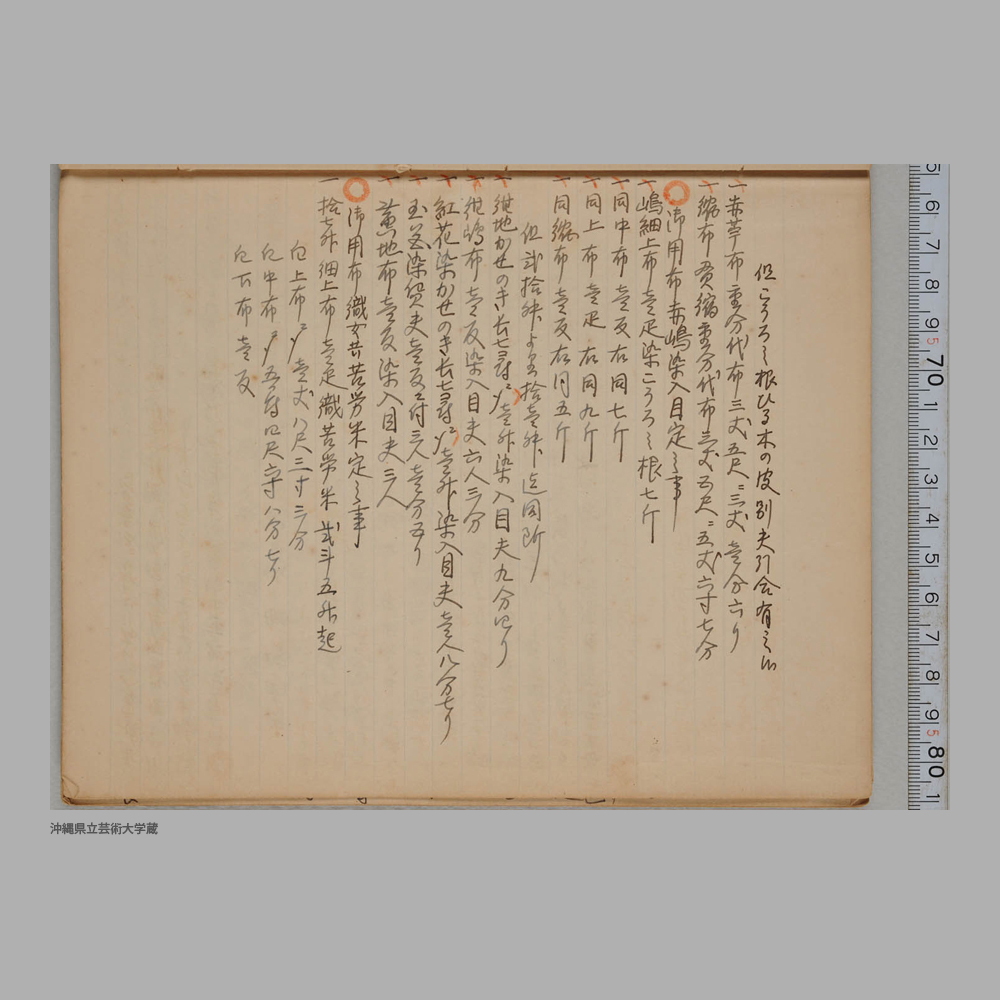 但こうろく根ひる木の皮別夫引合有之候
一赤苧布壱分代布三丈五尺ニ三丈壱分六り
一縮布貫縮壱分代布三丈五尺ニ五丈六寸七分
御用布赤嶋染入目定之事
一嶋細上布壱疋染こうろく根七斤
一同中布壱反右同七斤
一同上布壱疋右同九斤
一同縮布壱反右同五斤
但弐拾舛より拾壱舛迄同断
一紺地かせのき長七尋ニ〆壱舛染入目夫九分四り
一紺嶋布壱反染入目夫六人三分
一紅花染かせのき長七尋ニ〆壱舛染入目夫壱人八分七り
一 染貸夫壱反ニ付三人壱分五り
一黄地布壱反染入目夫三人
御用布織女共苦労米定之事
一拾七舛細上布壱疋織苦労米弐斗五舛起
但上布〆壱丈八尺三寸三分
但中布〆五尋四尺六寸八分七り
但下布壱反
5 6 7 8 9 5 70 1 2 3 4 5 6 7 8 9 5 80 1
沖縄県立芸術大学蔵